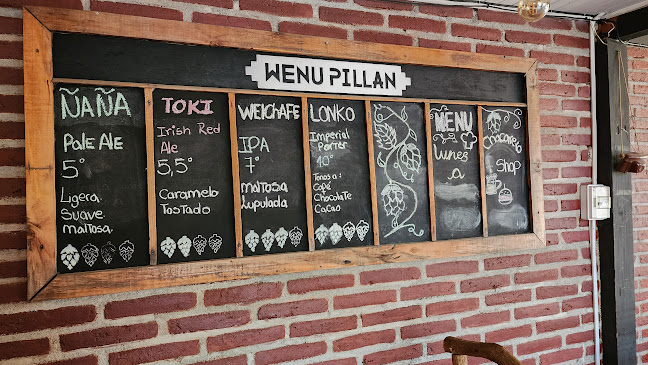 WENU PILLAN
ÑAÑA
Pale Ale
5°
Ligera
Suave
maltosa
TOKI
Irish Red
Ale
5,5°
Caramelo
Tostado
WEICHAFE
IPA
7°
maltosa
Lupulada
LONKO
Imperial
Porter
10°
Tonos a:
Café
Chocolate
Cacao
MENU
Lunes
a
Shop